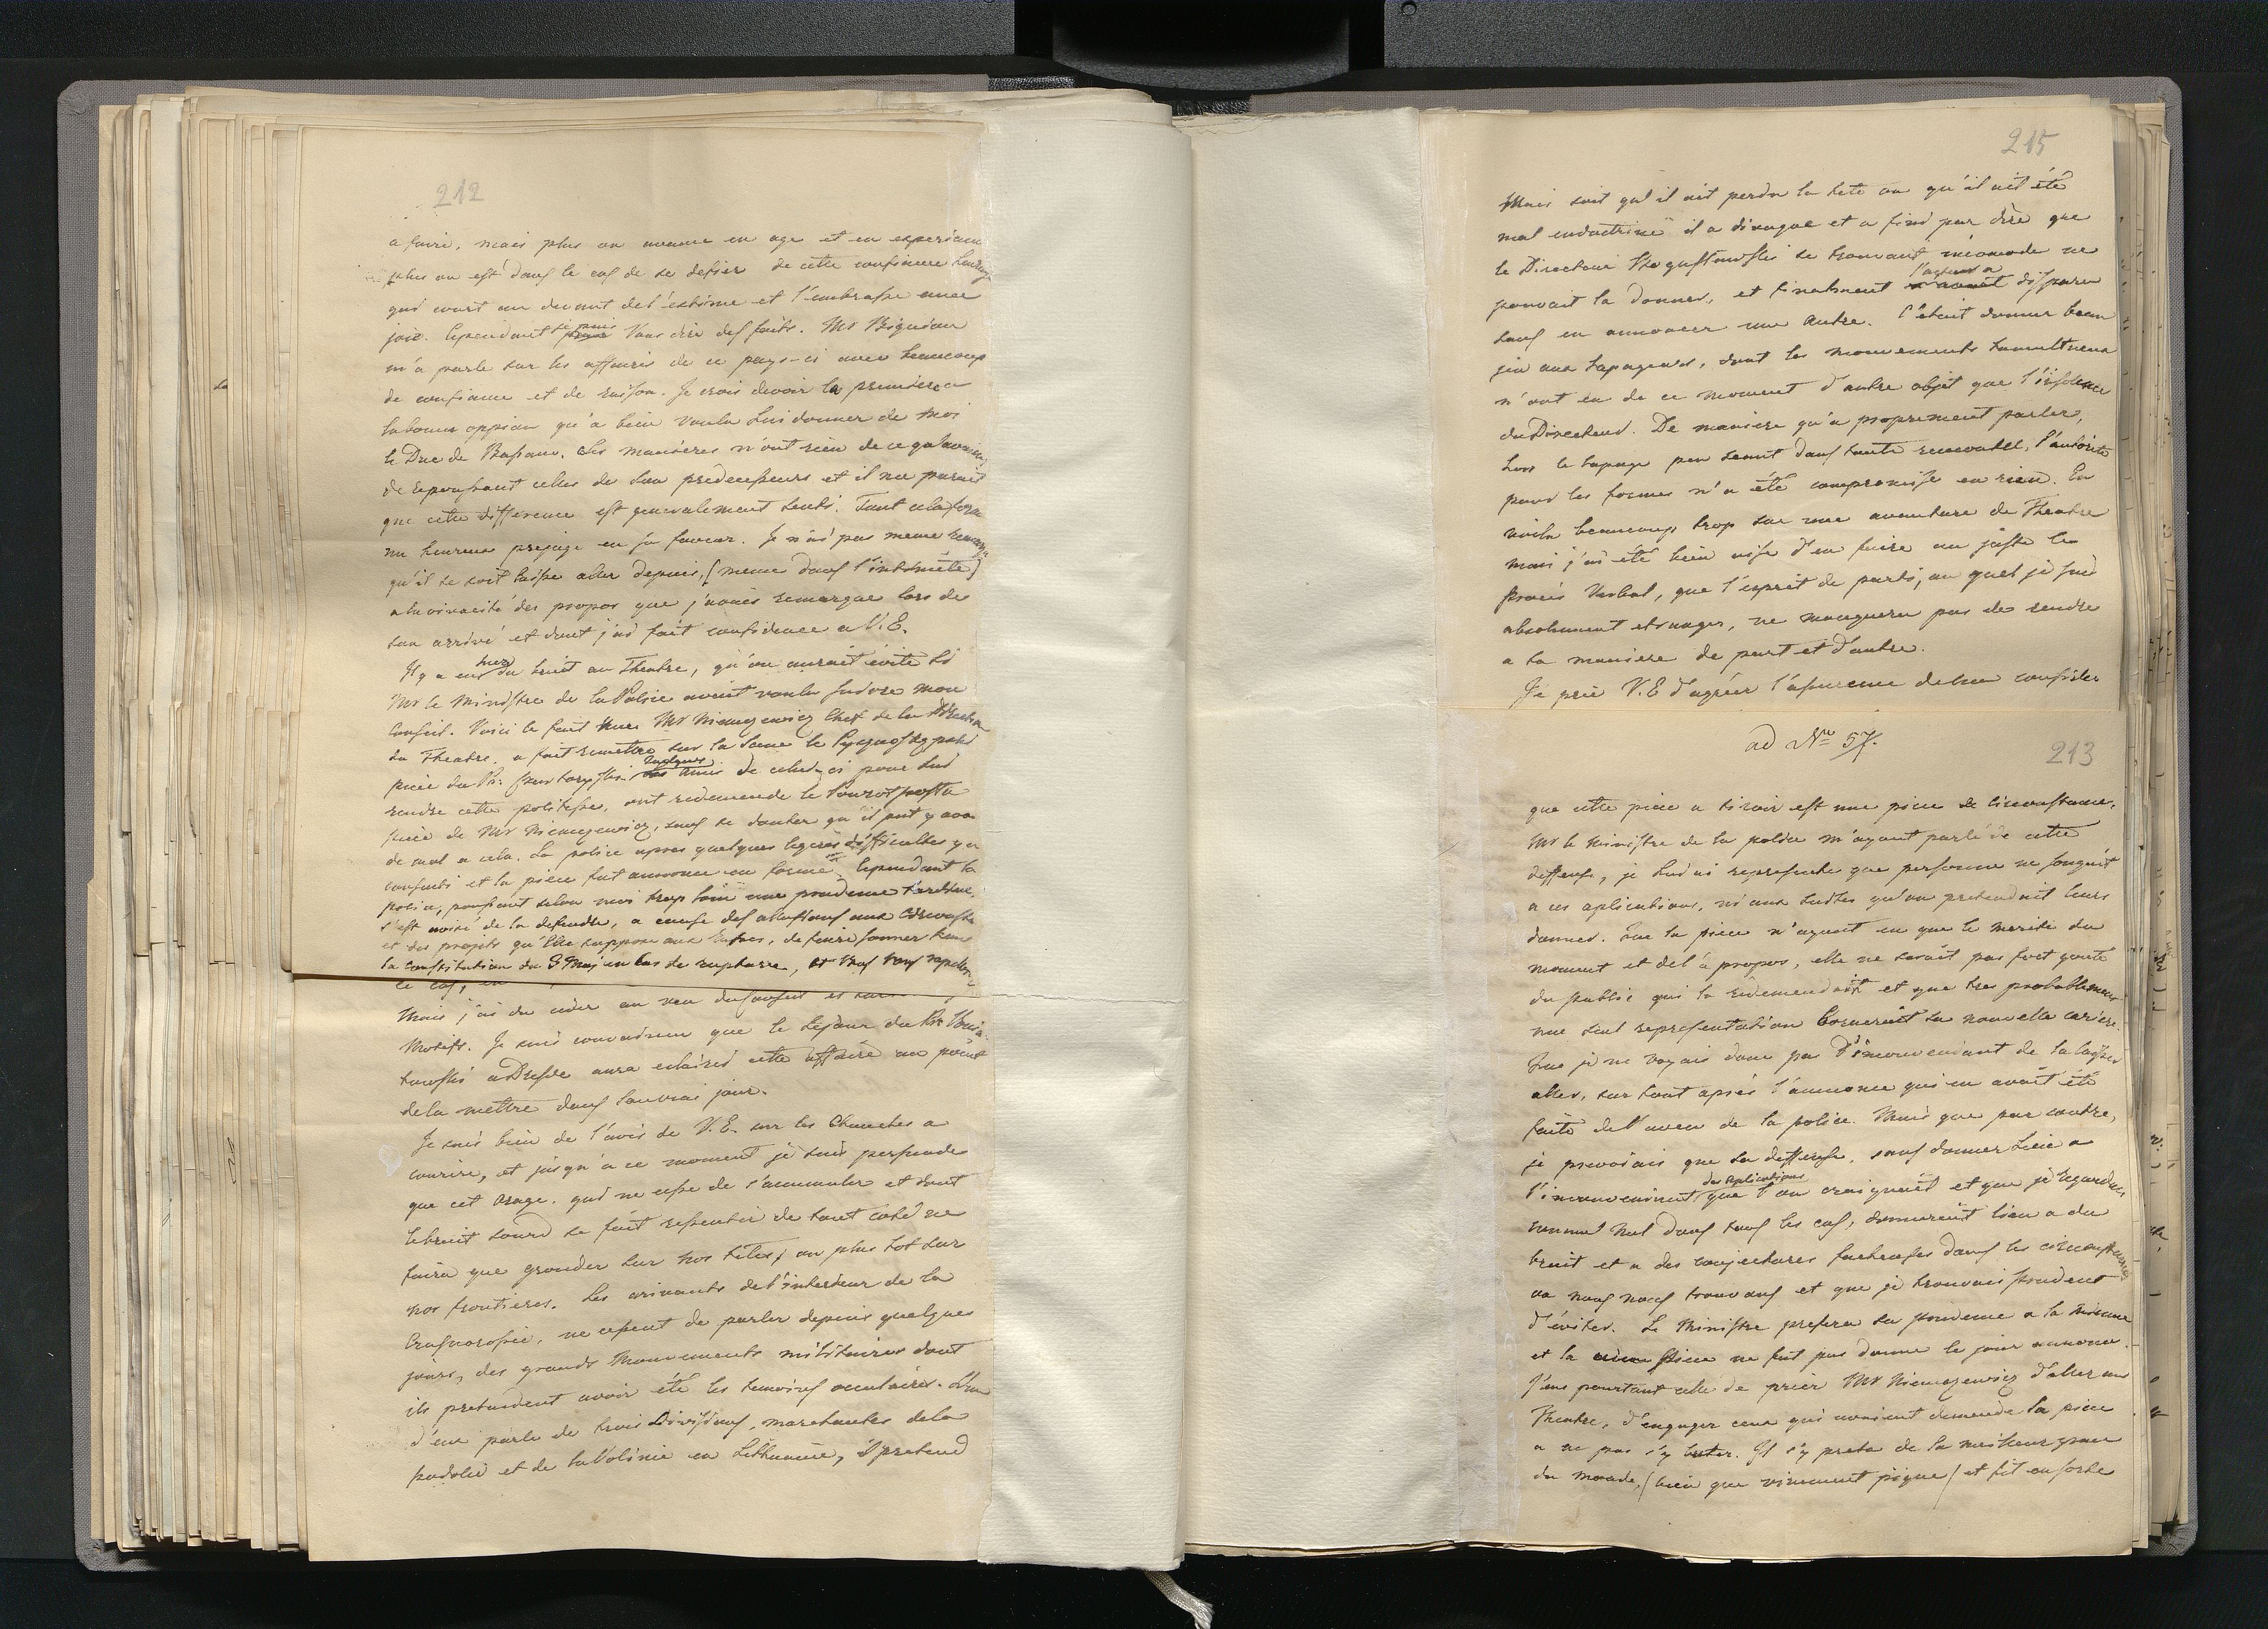 212
a faire, mais plus on avance en age et en experience
plus on est dans le cas de se defier de cette confiance
qui court au devant de l'estime et l'embrasse avec
joie. Cependant je puis Vous dire des faits. Mr Bignion
m'a parlé sur les affaires de ce pays-ci avec beaucoup
de confiance et de raison. Je crois devoir la premiere a
la bonne oppion qu'a bien voulu lui donner de moi
le Duc de Bassano. Ses manieres n'ont rien de ce qu'avaient
de repoussant celles de son predecesseurs et il me parait
que cette difference est generalement senti. Tout cela forme
un heureux prejuge en sa faveur. Je n'ai pas meme remarqué
qu'il se soit laisse aller depuis, (meme dans l'intimité)
a la vivacité des propos que j'avais remarque lors de
son arrivé et dont j'ai fait confidence a V. E.
Il y a eu hier du bruit au Theatre, qu'on aurait evité si
Mr le Ministre de la Police avait voulu suivre mon
Conseil. Voici le fait Mr Niemcewicz Chef de la Direction
du Theatre, a fait remettre sur la Scene le
piece du Pr: Czartoryski. quelques amis de celui-ci pour lui
rendre cette politesse, ont redemandé le Powrot posła
piece de Mr Niemcewicz, sans se douter qu'il put y avoir
de mal a cela. La police apres quelques legeres difficultes y a
consenti et la piece fut annoncé en forme. Cependant la
police, poussant selon moi trop loin une prudence tardive,
s'est avisé de la defendre, a cause des allusions aux
et des projets qu'Elle suppose aux de faire sonner
la constitution du 3 Maj en cas de rupture, et
le cas, en
Mais j'ai du ceder au veu du conseil et
Motifs. Je suis convaincu que le sejour du Pr
a Dresde aura eclairci cette affaire au point
de la mettre dans son vrai jour.
Je suis bien de l'avis de V. E. sur les Chanches a
courire, et jusqu'a ce moment je suis persuade
que cet orage. qui ne cesse de s'accumuler et dont
le bruit sourd se fait ressentir de tout coté ne
faira que gronder sur nos tetes, ou plus tot sur
nos frontieres. Les arivants de l'interieur de la
ne cessent de parler depuis quelques
jours, des grands Mouvements militaires dont
ils pretendent avoir été les temoins occulaires. L'un
d'eux parle de trois Divisions, marchantes de la
podolie et de la Volinie en Lithuanie, il pretend
215
Mais soit qu'il ait perdu la tete ou qu'il ait été
mal endoctriné il a divagué et a fini par dire que
le Directeur Boguslawski se trouvant incomode ne
pouvait la donner, et finalment l'acteur a disparu
sans en annoncer une autre. C'etait donner beau
jeu aux tapageurs, dont les mouvements tumultueux
n'ont eu de ce moment d'autre objet que l'insolence
du Directeur. De maniere qu'a proprement parler,
hors le tapage peu seant dans toute l'autorité
pour les formes n'a été compromise en rien. En
voila beaucoup trop sur une avanture de Theatre
mais j'ai été bien aise d'en faire au juste le
Procès Verbal, que l'esprit de parti, au quel je suis
absolument etranger, ne manquera pas de rendre
a sa maniere de part et d'autre.
Je prie V. E d'agréer l'assurance de ma
ad No 57.
213
que cette piece a tiroir est une piece de circonstance,
Mr le Ministre de la police m'ayant parlé de cette
deffense, je lui ai representé que personne ne songeait
a ces aplications, ni aux suites qu'on pretendait leurs
donner. Que la piece n'ayant eu que le merite du
moment et de l'à propos, elle ne serait pas fort gouté
du public qui la redemendait et que tres probablement
une seul representation bornerait sa nouvelle cariere.
Que je ne voyais donc pas d'inconvenient de la laisser
aller, sur tout après l'annonce qui en avait été
faite de l'aveu de la police. Mais que par contre,
je prevoiais que sa deffense, sans donner lieu a
l'inconvenient des aplications que l'on craignait et que je regardais
comme nul dans tous les cas, donnerait lieu a du
bruit et a des conjectures facheuses dans les circonstances
ou nous nous trouvons et que je trouvais prudent
d'eviter. Le Ministre prefera sa prudence a la mienne
et la piece ne fut pas donné le jour annoncé.
J'eus pourtant celle de prier Mr Niemcewicz d'aller au
Theatre, d'engager ceux qui avaient demendé la piece
a ne pas s'y buter. Il s'y preta de la meilleur grace
du monde, (bien que vivement piqué) et fit en sorte